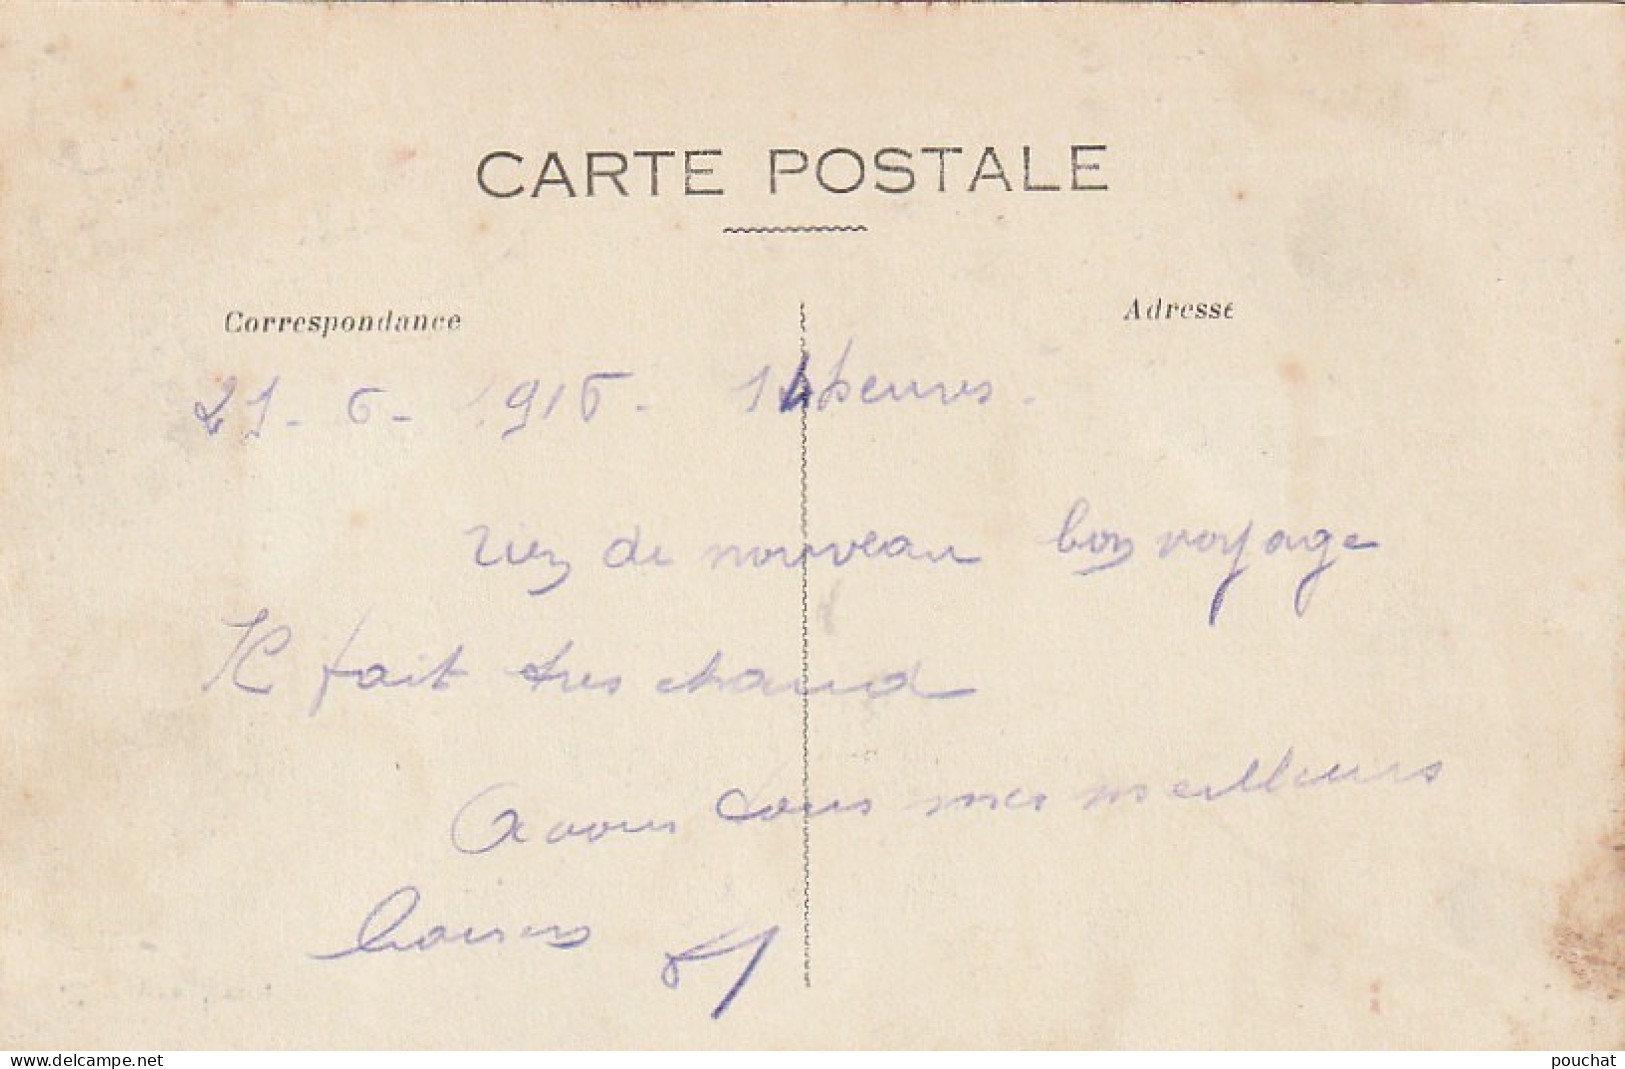 CARTE POSTALE
Correspondance
Adresse
21-6-1916- 14 heures.
rien de nouveau bon voyage
Il fait tres chaud
A vous tous mes meilleurs
baisers
www.delcampe.net
pouchat